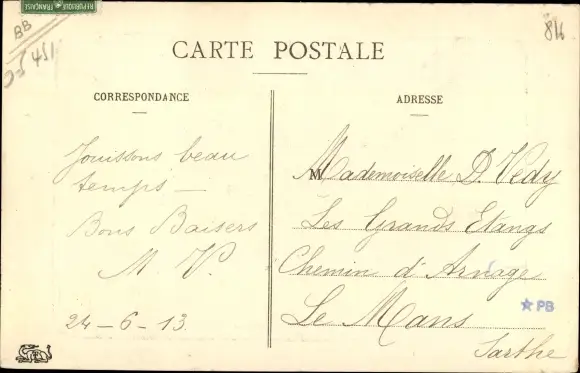 RÉPUBLIQUE FRANÇAISE
BB
816
CARTE POSTALE
CORRESPONDANCE
ADRESSE
Jouissons beau
temps —
Bons Baisers
M. V.
24-6-13
Mademoiselle D. Védy
Les Grands Etangs
Chemin d'Arnage
Le Mans
Sarthe
PB